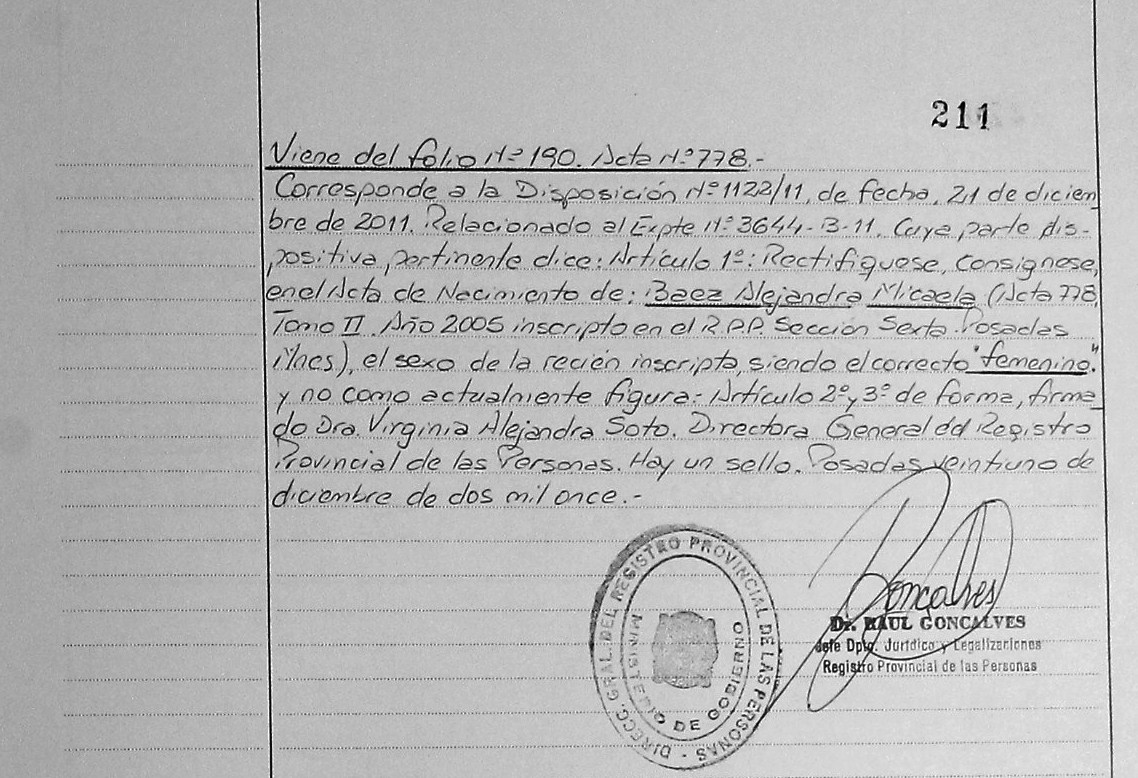 211
Viene del folio Nº 190. Acta Nº 778.-
Corresponde a la Disposición Nº 1122/11, de fecha, 21 de diciem
bre de 2011. Relacionado al Expte Nº 3644-B-11. Cuya parte dis-
positiva pertinente dice: Artículo 1º: Rectifiquese, Consignese,
en el Acta de Nacimiento de: Baez Alejandra Micaela (Acta 778,
Tomo II. Año 2005 inscripto en el R.P.P. Sección Sexta. Posadas
Mnes), el sexo de la recién inscripta, siendo el correcto "femenino."
y no como actualmente figura: Artículo 2º y 3º de forma, firma_
do Dra. Virginia Alejandra Soto. Directora General del Registro
Provincial de las Personas. Hay un sello. Posadas veintiuno de
diciembre de dos mil once.-
DIRECC. GRAL. DEL REGISTRO PROVINCIAL DE LAS PERSONAS -
MINISTERIO DE GOBIERNO
Goncalves
Dr. RAUL GONCALVES
Jefe Dpto. Jurídico y Legalizaciones
Registro Provincial de las Personas